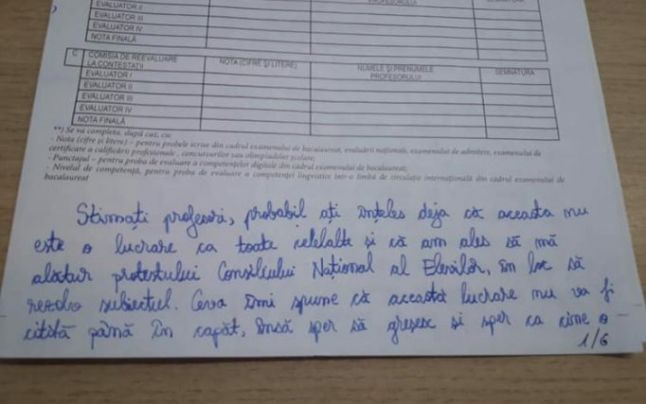 EVALUATOR II
EVALUATOR III
EVALUATOR IV
NOTA FINALĂ
PROFESORULUI
SEMNĂTURA
C COMISIA DE REEVALUARE LA CONTESTAȚII NOTA (CIFRE ȘI LITERE) NUMELE ȘI PRENUMELE PROFESORULUI SEMNĂTURA
EVALUATOR I
EVALUATOR II
EVALUATOR III
EVALUATOR IV
NOTA FINALĂ
**) Se va completa, după caz, cu:
- Nota (cifre și litere) - pentru probele scrise din cadrul examenului de bacalaureat, evaluării naționale, examenului de admitere, examenului de
certificare a calificării profesionale, concursurilor sau olimpiadelor școlare;
- Punctajul - pentru proba de evaluare a competențelor digitale din cadrul examenului de bacalaureat;
- Nivelul de competență, pentru proba de evaluare a competenței lingvistice într-o limbă de circulație internațională din cadrul examenului de
bacalaureat
Stimați profesori, probabil ați înțeles deja că aceasta nu
este o lucrare ca toate celelalte și că am ales să mă
alătur protestului Consiliului Național al Elevilor, în loc să
rezolv subiectul. Ceva îmi spune că această lucrare nu va fi
citită până în capăt, însă sper să greșesc și sper ca cine o
1/6